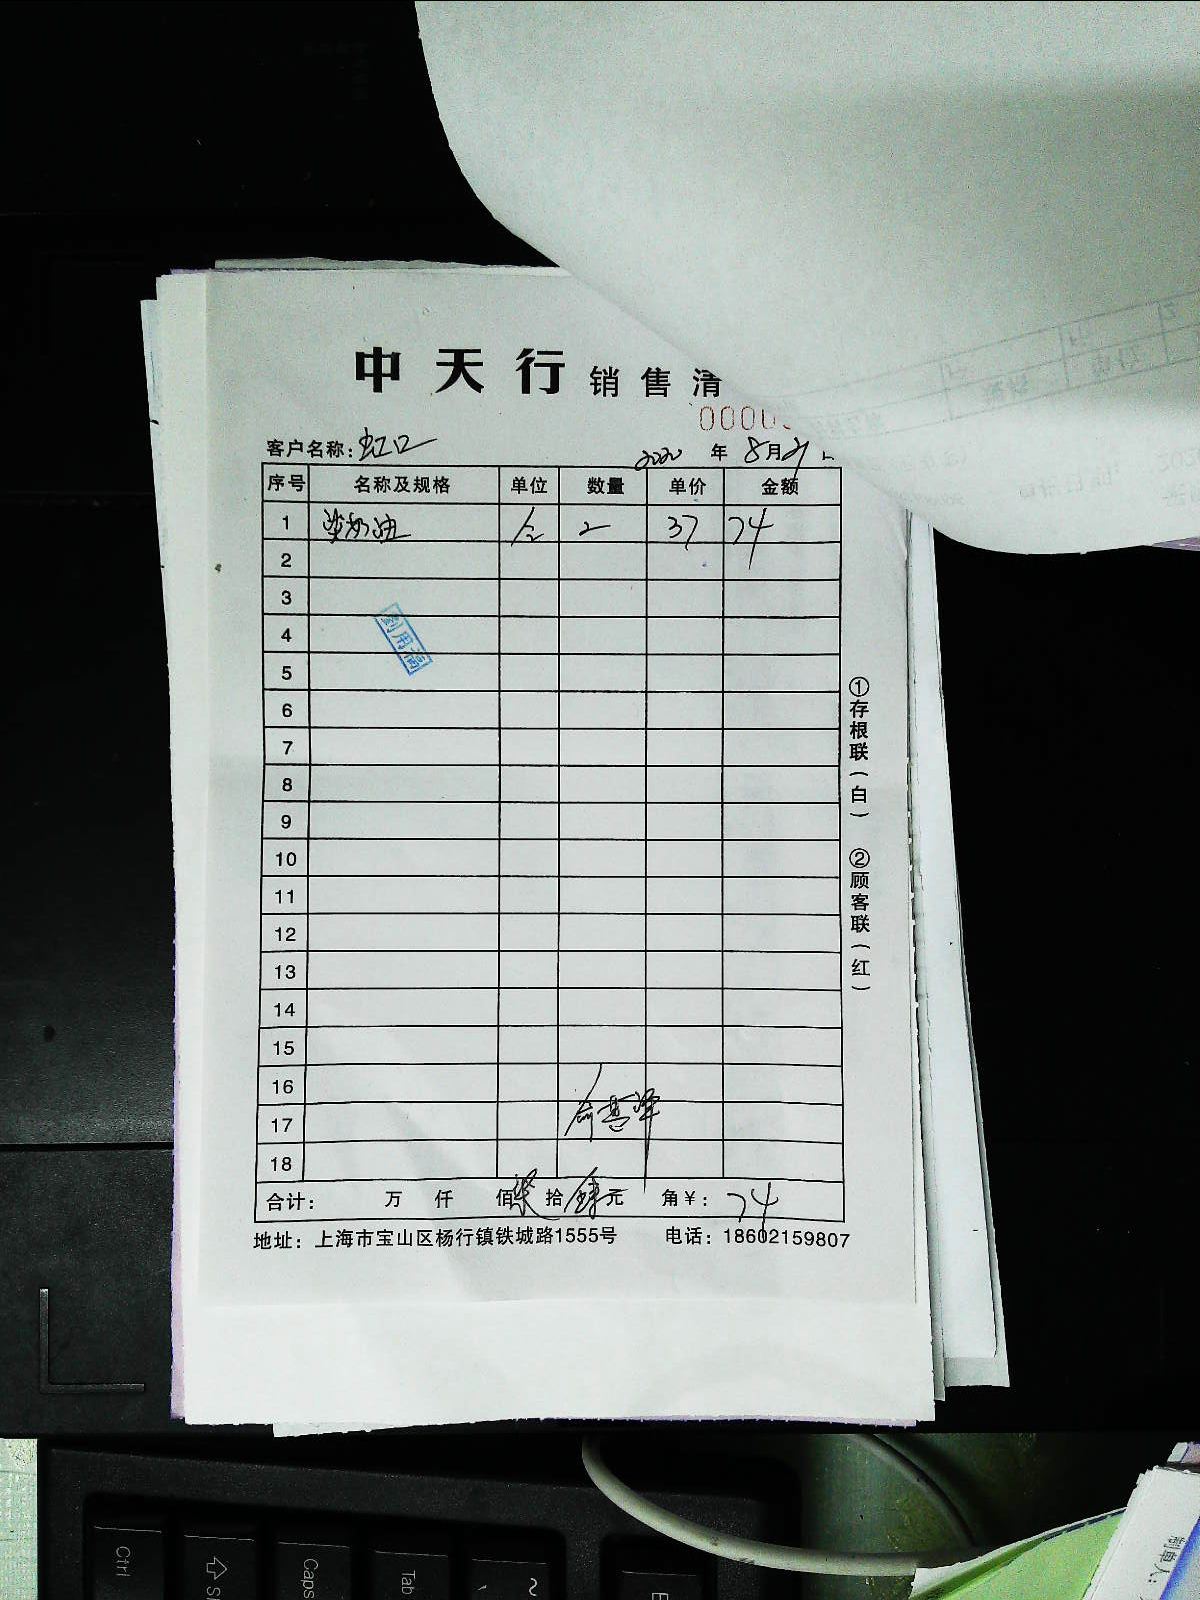 中天行 销售清
0000
客户名称: 虹口 2020 年 8月21
序号 名称及规格 单位 数量 单价 金额
1 奶油 2 37 74
2
3
4
5
6
7
8
9
10
11
12
13
14
15
16
17
18
合计: 万 仟 佰 柒 拾 肆 元 角 ¥: 74
地址: 上海市宝山区杨行镇铁城路1555号 电话: 18602159807
①存根联(白) ②顾客联(红)
刘用福
Ctrl
Caps
Tab
~
制单人: